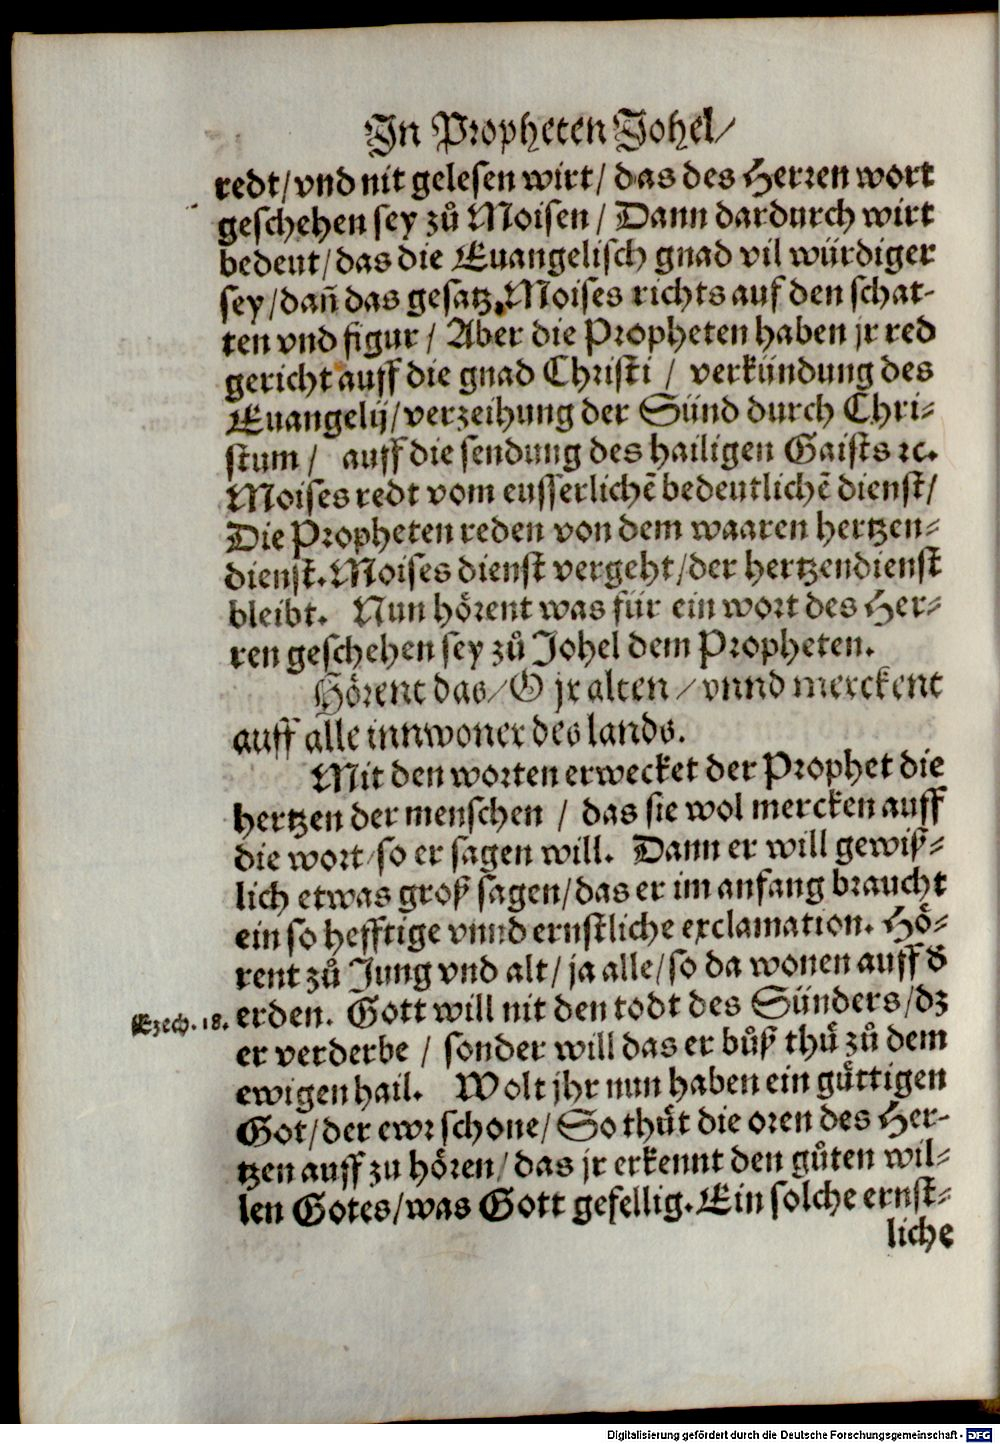 In Propheten Johel/
redt/vnd nit gelesen wirt/ das des Herren wort
geschehen sey zů Moisen / Dann dardurch wirt
bedeut/das die Euangelisch gnad vil würdiger
sey/dañ das gesatz. Moises richts auf den schat-
ten vnd figur / Aber die Propheten haben jr red
gericht auff die gnad Christi / verkündung des
Euangelij/verzeihung der Sünd durch Chri-
stum / auff die sendung des hailigen Gaists ꝛc.
Moises redt vom eusserlichē bedeutlichē dienst/
Die Propheten reden von dem waaren hertzen-
dienst. Moises dienst vergeht/der hertzendienst
bleibt. Nun hörent was für ein wort des Her-
ren geschehen sey zů Johel dem Propheten.
Hörent das/O jr alten /vnnd merckent
auff alle innwoner des lands.
Mit den worten erwecket der Prophet die
hertzen der menschen / das sie wol mercken auff
die wort/so er sagen will. Dann er will gewiß-
lich etwas groß sagen/das er im anfang braucht
ein so hefftige vnnd ernstliche exclamation. Hö-
rent zů Jung vnd alt/ ja alle/so da wonen auff d̕
Ezech. 18. erden. Gott will nit den todt des Sünders/dz
er verderbe / sonder will das er bůß thů zů dem
ewigen hail. Wolt jhr nun haben ein gůttigen
Got/der ewr schone/ So thůt die oren des Her-
tzen auff zu hören/das jr erkennt den gůten wil-
len Gotes/was Gott gefellig. Ein solche ernst-
liche
Digitalisierung gefördert durch die Deutsche Forschungsgemeinschaft - DFG